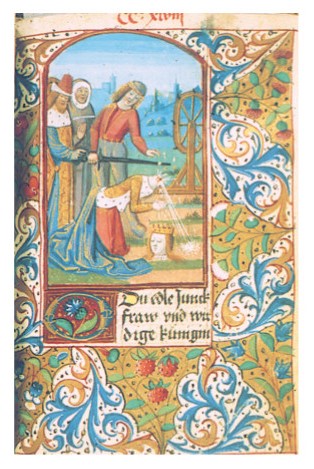 CC
Du edle Junck
fraw vnd wir
dige kunigin